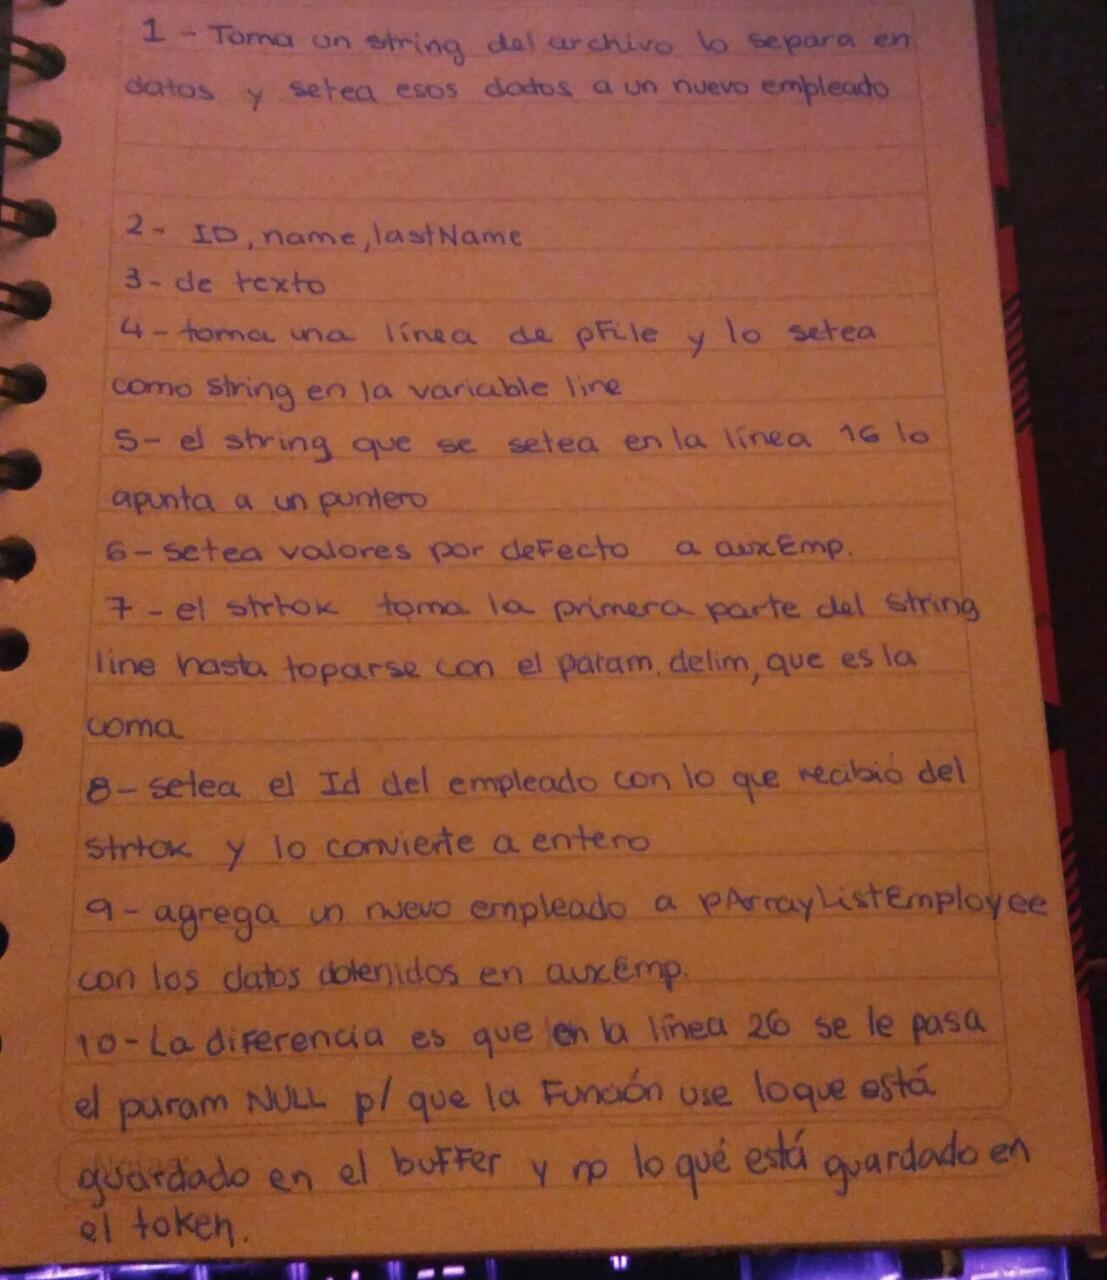 1 - Toma un string del archivo lo separa en
datos y setea esos datos a un nuevo empleado
2- ID, name, lastName
3- de texto
4- toma una línea de pFile y lo setea
como string en la variable line
5- el string que se setea en la línea 16 lo
apunta a un puntero
6- setea valores por defecto a auxEmp.
7- el strtok toma la primera parte del string
line hasta toparse con el param. delim, que es la
coma
8- setea el Id del empleado con lo que recibió del
strtok y lo convierte a entero
9- agrega un nuevo empleado a pArrayListEmployee
con los datos obtenidos en auxEmp.
10- La diferencia es que en la línea 26 se le pasa
el param NULL p/ que la Función use lo que está
guardado en el buffer y no lo qué está guardado en
el token.